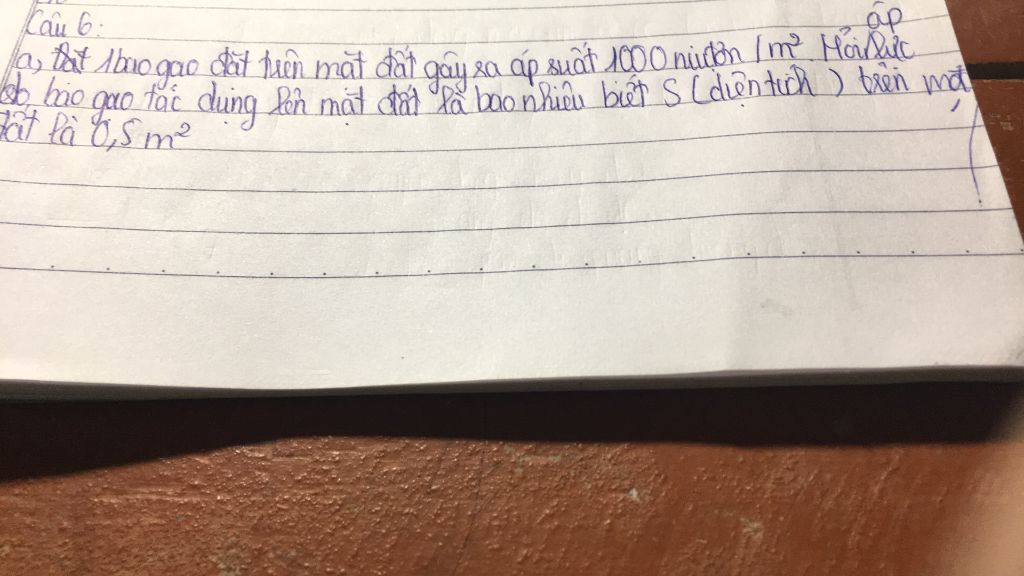 Câu 6:
áp
a, Đặt 1 bao gạo đặt trên mặt đất gây ra áp suất 1000 niutơn /m² Hỏi lực
bao gạo tác dụng lên mặt đất là bao nhiêu biết S (diện tích) trên mặt
đất là 0,5m²